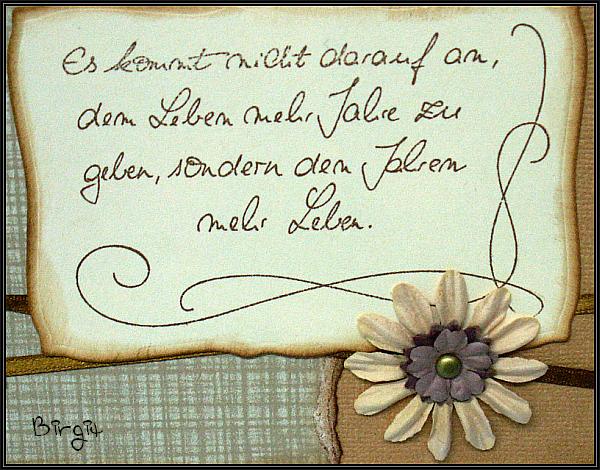 Es kommt nicht darauf an,
dem Leben mehr Jahre zu
geben, sondern den Jahren
mehr Leben.
Birgit